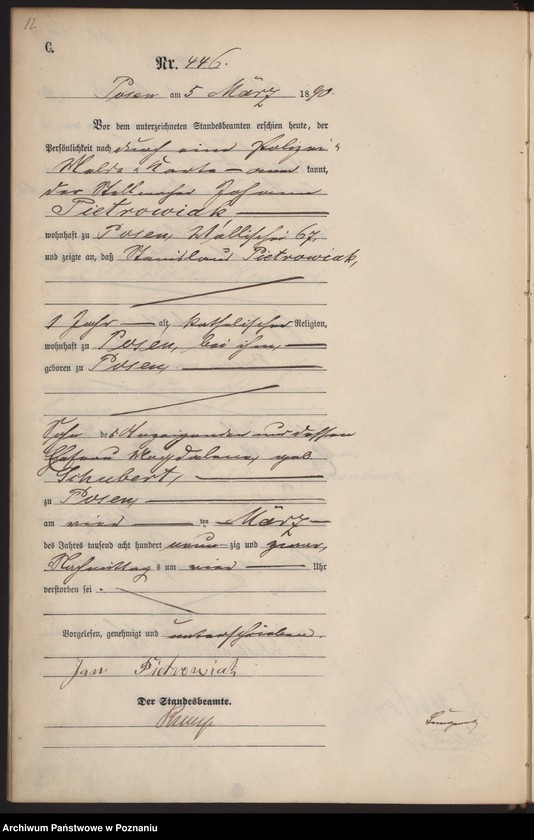 12
C.
Nr. 446.
Posen am 5 März 1890.
Vor dem unterzeichneten Standesbeamten erschien heute, der
Persönlichkeit nach durch eine Polizei-
Melde-Karte kannt,
der Stellmacher Johann
Pietrowiak
wohnhaft zu Posen, Wallischei 67,
und zeigte an, daß Stanislaus Pietrowiak,
1 Jahr alt, katholischer Religion,
wohnhaft zu Posen, bei ihm,
geboren zu Posen,
Sohn des Anzeigenden und dessen
Ehefrau Magdalena, geb.
Schubert,
zu Posen,
am vier ten März
des Jahres tausend acht hundert neunzig und zwar,
Nachmittags um vier Uhr
verstorben sei.
Vorgelesen, genehmigt und unterschrieben.
Jan Pietrowiak
Der Standesbeamte.
Archiwum Państwowe w Poznaniu